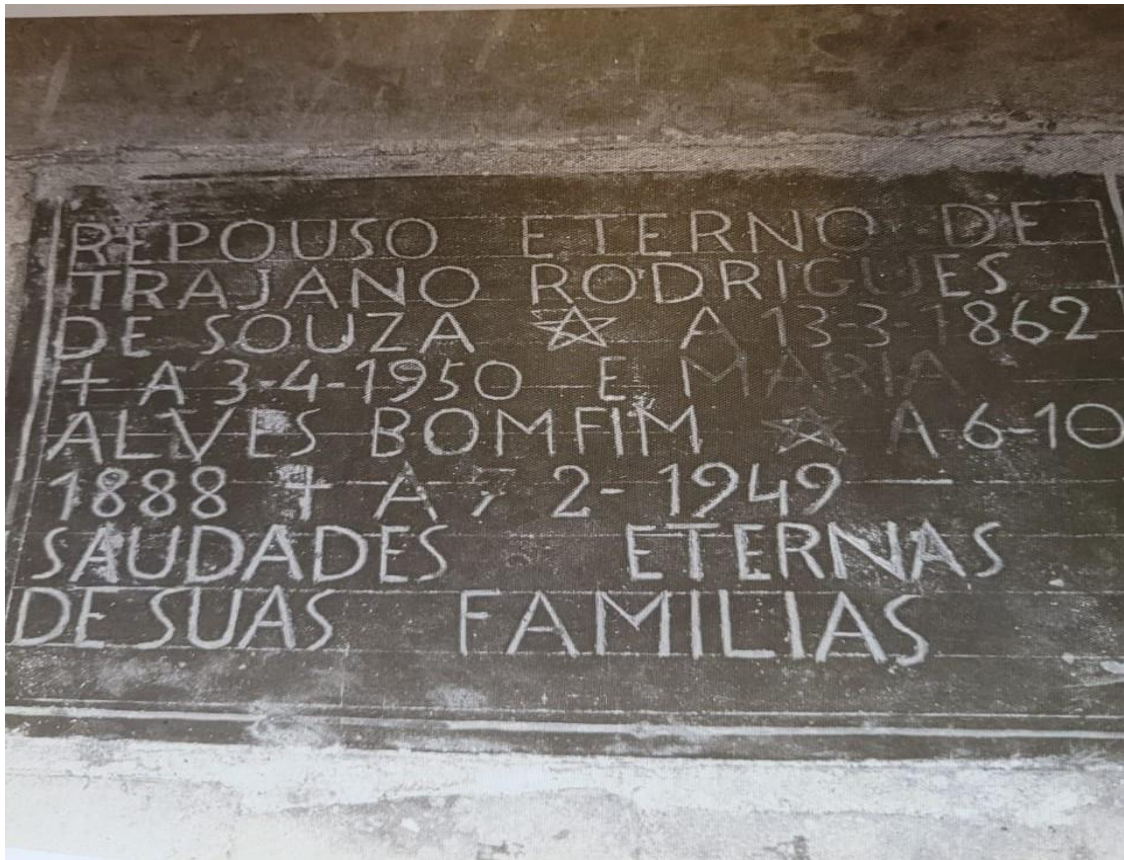 REPOUSO ETERNO DE
TRAJANO RODRIGUES
DE SOUZA ☆ A 13-3-1862
+ A 3-4-1950 E MARIA
ALVES BOMFIM ☆ A 6-10
1888 + A 7 2-1949
SAUDADES ETERNAS
DE SUAS FAMILIAS